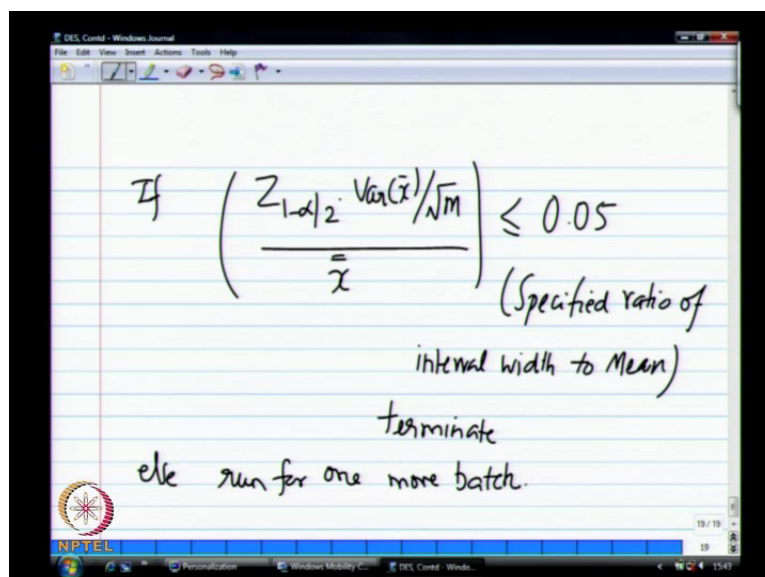 DES, Contd - Windows Journal
File Edit View Insert Actions Tools Help
If ( Z₁₋α/₂ · Var(x̄)/√m / x̿ ) ≤ 0.05
(Specified ratio of
interval width to Mean)
terminate
else run for one more batch.
NPTEL
19 / 19
19
Personalization Windows Mobility C... DES, Contd - Windo... 15:43